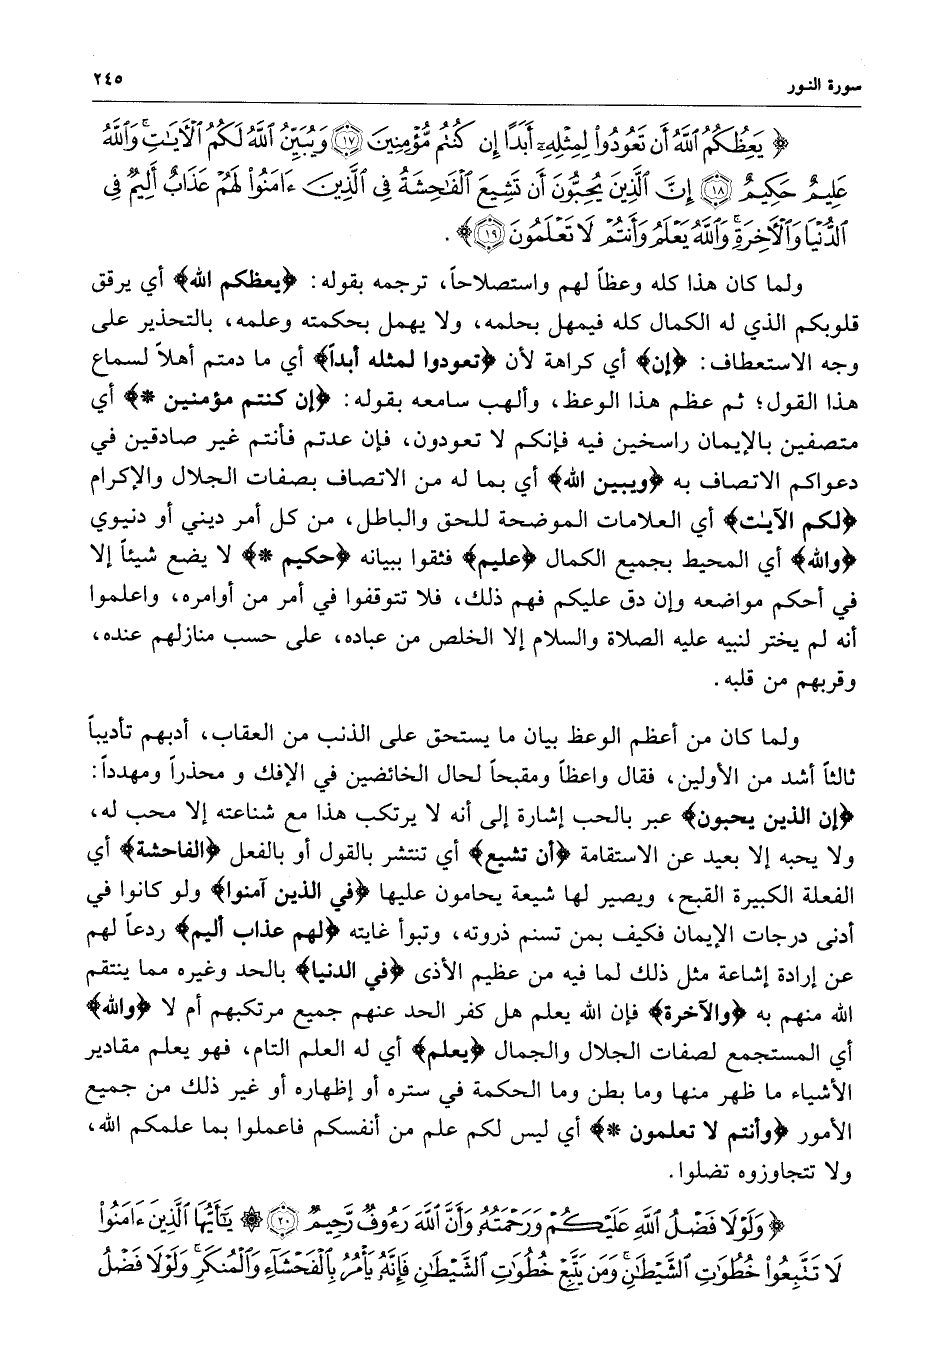 سورة النور
٢٤٥
﴿ يَعِظُكُمُ ٱللَّهُ أَن تَعُودُوا۟ لِمِثْلِهِۦٓ أَبَدًا إِن كُنتُم مُّؤْمِنِينَ ١٧ وَيُبَيِّنُ ٱللَّهُ لَكُمُ ٱلْـَٔايَـٰتِ ۚ وَٱللَّهُ
عَلِيمٌ حَكِيمٌ ١٨ إِنَّ ٱلَّذِينَ يُحِبُّونَ أَن تَشِيعَ ٱلْفَـٰحِشَةُ فِى ٱلَّذِينَ ءَامَنُوا۟ لَهُمْ عَذَابٌ أَلِيمٌ فِى
ٱلدُّنْيَا وَٱلْـَٔاخِرَةِ ۚ وَٱللَّهُ يَعْلَمُ وَأَنتُمْ لَا تَعْلَمُونَ ١٩ ﴾ .
ولما كان هذا كله وعظاً لهم واستصلاحاً، ترجمه بقوله: ﴿يعظكم الله﴾ أي يرقق
قلوبكم الذي له الكمال كله فيمهل بحلمه، ولا يهمل بحكمته وعلمه، بالتحذير على
وجه الاستعطاف: ﴿إن﴾ أي كراهة لأن ﴿تعودوا لمثله أبداً﴾ أي ما دمتم أهلاً لسماع
هذا القول؛ ثم عظم هذا الوعظ، وألهب سامعه بقوله: ﴿إن كنتم مؤمنين *﴾ أي
متصفين بالإيمان راسخين فيه فإنكم لا تعودون، فإن عدتم فأنتم غير صادقين في
دعواكم الاتصاف به ﴿ويبين الله﴾ أي بما له من الاتصاف بصفات الجلال والإكرام
﴿لكم الآيٰت﴾ أي العلامات الموضحة للحق والباطل، من كل أمر ديني أو دنيوي
﴿والله﴾ أي المحيط بجميع الكمال ﴿عليم﴾ فثقوا ببيانه ﴿حكيم *﴾ لا يضع شيئاً إلا
في أحكم مواضعه وإن دق عليكم فهم ذلك، فلا تتوقفوا في أمر من أوامره، واعلموا
أنه لم يختر لنبيه عليه الصلاة والسلام إلا الخلص من عباده، على حسب منازلهم عنده،
وقربهم من قلبه.
ولما كان من أعظم الوعظ بيان ما يستحق على الذنب من العقاب، أدبهم تأديباً
ثالثاً أشد من الأولين، فقال واعظاً ومقبحاً لحال الخائضين في الإفك و محذراً ومهدداً:
﴿إن الذين يحبون﴾ عبر بالحب إشارة إلى أنه لا يرتكب هذا مع شناعته إلا محب له،
ولا يحبه إلا بعيد عن الاستقامة ﴿أن تشيع﴾ أي تنتشر بالقول أو بالفعل ﴿الفاحشة﴾ أي
الفعلة الكبيرة القبح، ويصير لها شيعة يحامون عليها ﴿في الذين آمنوا﴾ ولو كانوا في
أدنى درجات الإيمان فكيف بمن تسنم ذروته، وتبوأ غايته ﴿لهم عذاب أليم﴾ ردعاً لهم
عن إرادة إشاعة مثل ذلك لما فيه من عظيم الأذى ﴿في الدنيا﴾ بالحد وغيره مما ينتقم
الله منهم به ﴿والآخرة﴾ فإن الله يعلم هل كفر الحد عنهم جميع مرتكبهم أم لا ﴿والله﴾
أي المستجمع لصفات الجلال والجمال ﴿يعلم﴾ أي له العلم التام، فهو يعلم مقادير
الأشياء ما ظهر منها وما بطن وما الحكمة في ستره أو إظهاره أو غير ذلك من جميع
الأمور ﴿وأنتم لا تعلمون *﴾ أي ليس لكم علم من أنفسكم فاعملوا بما علمكم الله،
ولا تتجاوزوه تضلوا.
﴿ وَلَوْلَا فَضْلُ ٱللَّهِ عَلَيْكُمْ وَرَحْمَتُهُۥ وَأَنَّ ٱللَّهَ رَءُوفٌ رَّحِيمٌ ٢٠ ۞ يَـٰٓأَيُّهَا ٱلَّذِينَ ءَامَنُوا۟
لَا تَتَّبِعُوا۟ خُطُوَٰتِ ٱلشَّيْطَـٰنِ ۚ وَمَن يَتَّبِعْ خُطُوَٰتِ ٱلشَّيْطَـٰنِ فَإِنَّهُۥ يَأْمُرُ بِٱلْفَحْشَآءِ وَٱلْمُنكَرِ ۚ وَلَوْلَا فَضْلُ